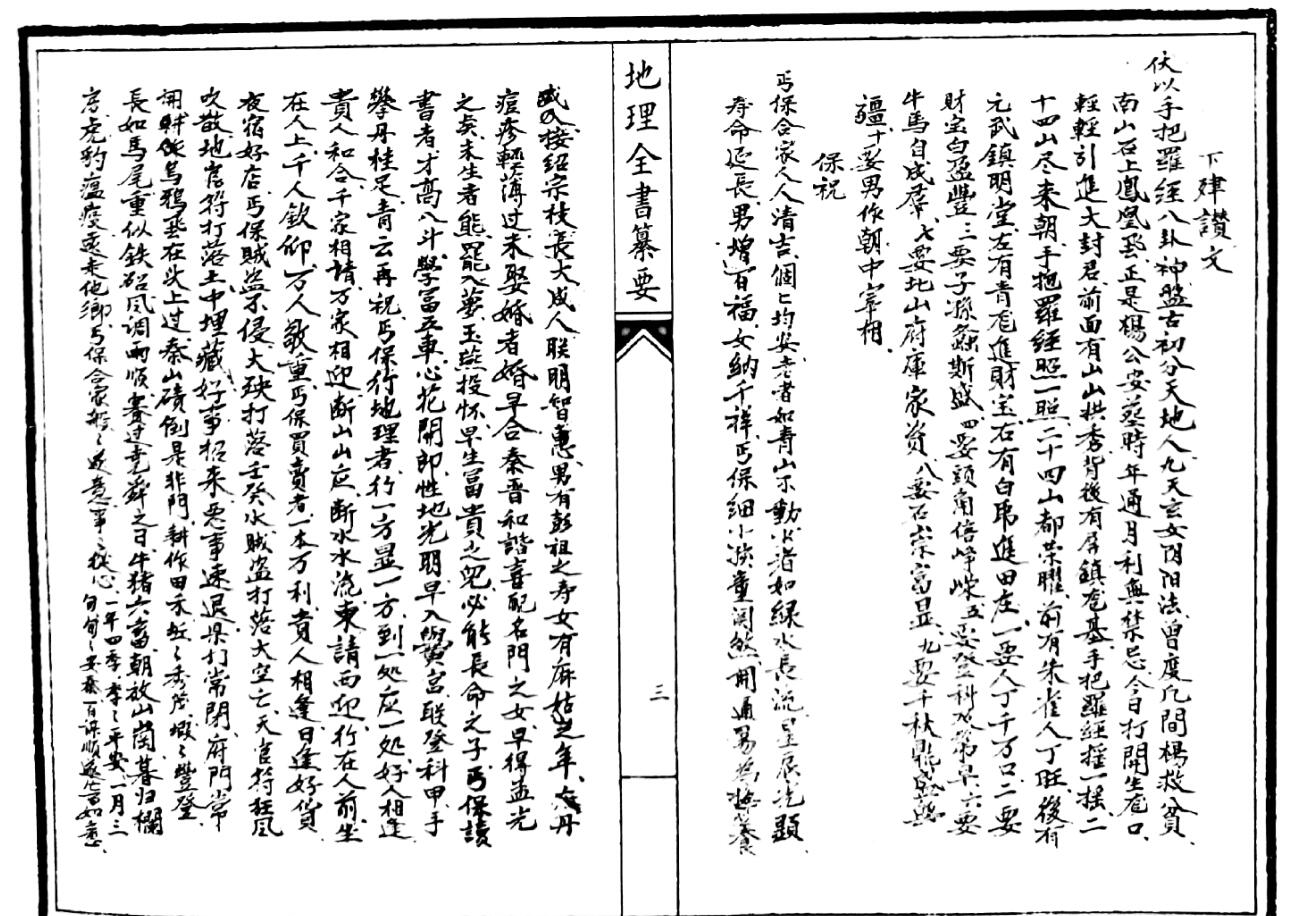 下肂讃文
伏以手把羅经八卦神盤古初分天地人九天玄女阴阳法曽度凢間楊救貧
南山石上鳳凰飛正是楊公安塟時年通月利無禁忌今日打開生龙口
輕輕引進大封君前面有山山拱秀背後有屏鎮龙基手把羅經摇一摇二
十四山尽来朝手把羅經照一照二十四山都荣耀前有朱雀人丁旺後有
元武鎮明堂左有青龙進財宝右有白虎進田庄一要人丁千万口二要
財宝自盈豐三要子孫螽斯盛四要頭角倍峥嵘五要登科及第早六要
牛馬自成羣七要北山府庫家資八要石崇富显九要千秋鼎盛
疆十要男作朝中宰相
保祝
丐保合家人人清吉個匕均安老者如青山不動少者如緑水長流星辰光顕
寿命延長男增百福女納千祥丐保細小孩童関煞開通易為撫養
地理全書纂要
三
成人接紹宗枝長大成人联明智惠男有彭祖之寿女有麻姑之年丹
痘疹輕薄过未娶婚者婚早合秦晋和諧喜配名門之女早得孟光
之矣未生者能罷入夢玉燕投怀早生富貴之兒必能長命之子丐保讀
書者才高八斗學冨五車心花開即性地光明早入黌宮联登科甲手
攀丹桂足青云再祝丐保行地理者行一方显一方到一处应一处好人相逢
貴人和合千家相請万家相迎断山山应断水水流東請西迎行在人前坐
在人上千人欽仰万人敬重丐保買賣者一本万利貴人相逢日逢好貨
夜宿好店丐保賊盗不侵大殃打落壬癸水賊盗打落大空亡天官符狂风
吹散地官符打落土中埋藏好事招来悪事速退県打常閉府門常
開鴉飛在头上过泰山磧倒是非門耕作田禾秀豐登
長如馬尾重似鉄砣风调雨順賽过堯舜之日牛猪六畜朝放山崗暮归欄
房虎豹瘟疫逐走他鄉丐保合家般ミ遂意事ミ从心一年四季季ミ平安一月三
旬旬ミ安泰百謀順遂万如意